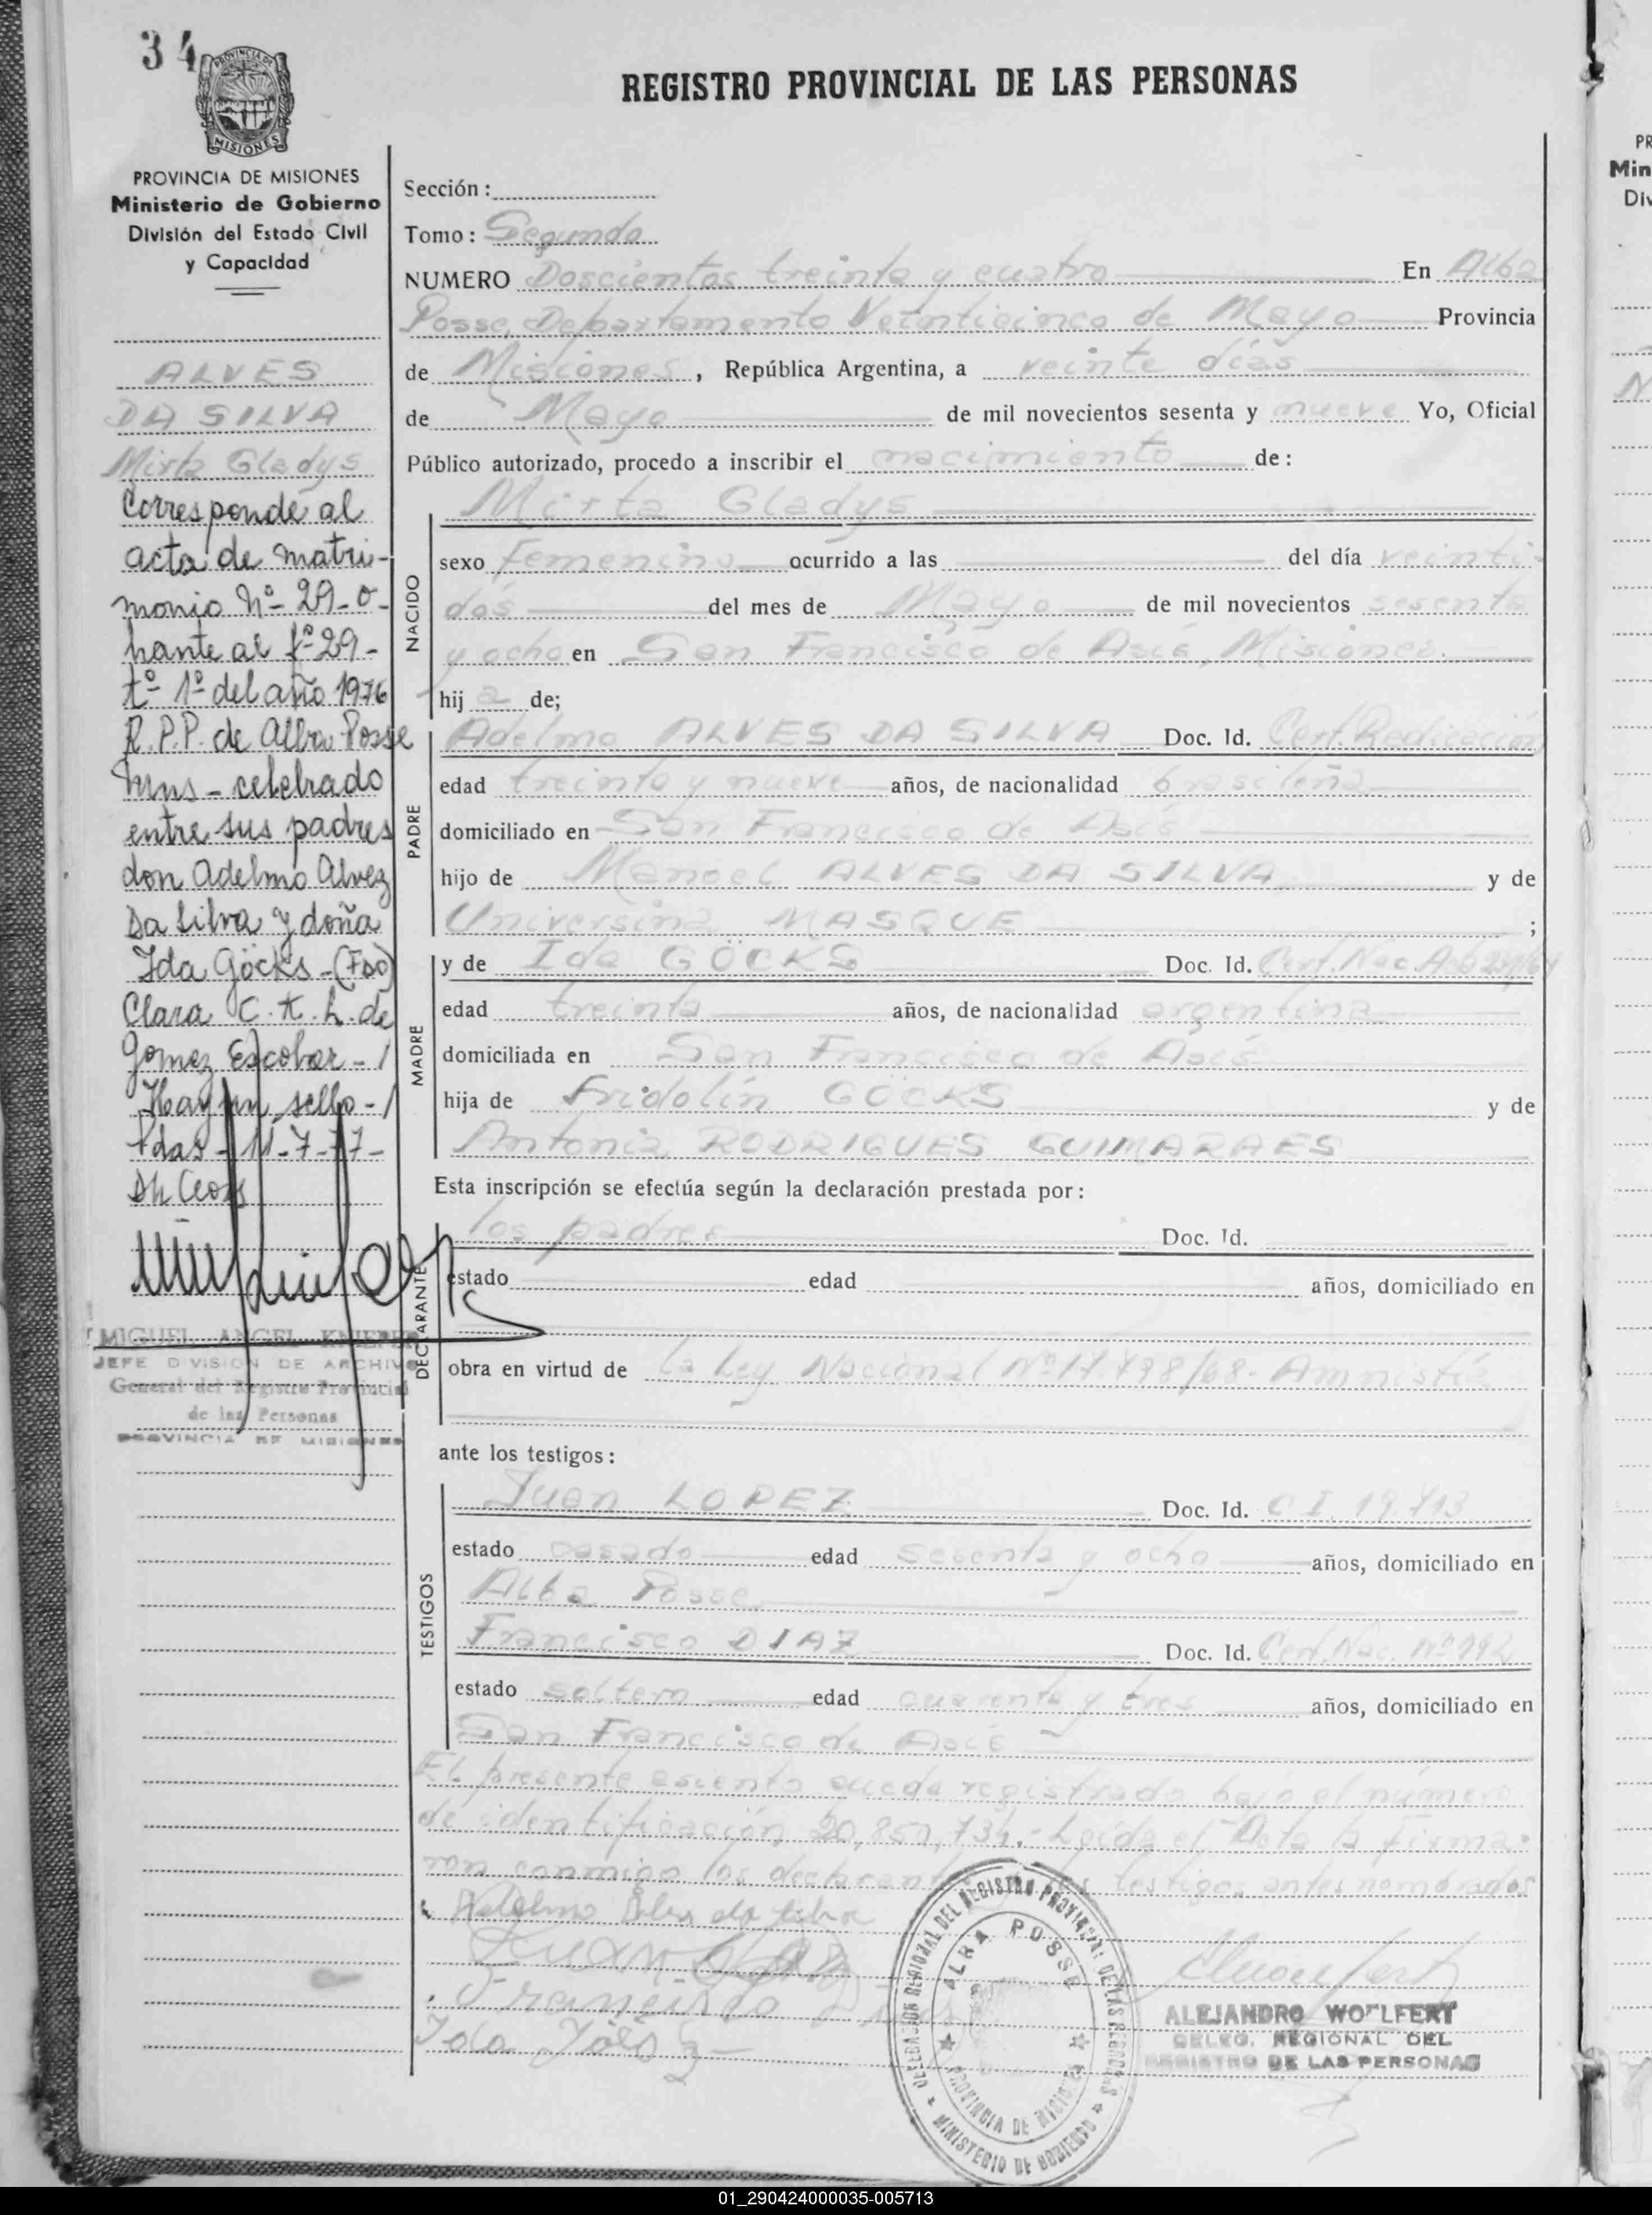 34
PROVINCIA DE
MISIONES
REGISTRO PROVINCIAL DE LAS PERSONAS
PROVINCIA DE MISIONES
Ministerio de Gobierno
División del Estado Civil
y Capacidad
ALVES
DA SILVA
Mirta Gladys
Corresponde al
acta de matri-
monio Nº 29-o-
brante al fº 29-
tº 1º del año 1976
R.P.P. de Alba Posse
Mns - celebrado
entre sus padres
don Adelmo Alvez
Da Silva y doña
Ida Göcks - (Fdo)
Clara C. K. L. de
Gomez Escobar - /
Hay un sello - /
Pdas - 11-7-77-
MIGUEL ANGEL KNIEPER
JEFE DIVISION DE ARCHIVO
General del Registro Provincial
de las Personas
PROVINCIA DE MISIONES
Sección:
Tomo: Segundo
NUMERO Doscientos treinta y cuatro En Alba
Posse, Departamento Veinticinco de Mayo Provincia
de Misiones, República Argentina, a veinte días
de Mayo de mil novecientos sesenta y nueve Yo, Oficial
Público autorizado, procedo a inscribir el nacimiento de:
NACIDO
Mirta Gladys
sexo femenino ocurrido a las del día veinti-
dós del mes de Mayo de mil novecientos sesenta
y ocho en San Francisco de Asís, Misiones.
hija de;
PADRE
Adelmo ALVES DA SILVA Doc. Id. Cert. Radicación
edad treinta y nueve años, de nacionalidad brasileña
domiciliado en San Francisco de Asís
hijo de Manoel ALVES DA SILVA y de
Universina MASQUE ;
MADRE
y de Ida GÖCKS Doc. Id. Cert. Nac.
edad treinta años, de nacionalidad argentina
domiciliada en San Francisco de Asís
hija de Fridolín GÖCKS y de
Antonia RODRIGUES GUIMARAES
Esta inscripción se efectúa según la declaración prestada por:
DECLARANTE
los padres Doc. Id.
estado edad años, domiciliado en
obra en virtud de la Ley Nacional Nº 17.798/68. Amnistía
ante los testigos:
TESTIGOS
Juan LOPEZ Doc. Id. C I. 19.713
estado casado edad sesenta y ocho años, domiciliado en
Alba Posse
Francisco DIAZ Doc. Id. Cert. Nac. Nº 992
estado soltero edad cuarenta y tres años, domiciliado en
San Francisco de Asís
El presente asiento queda registrado bajo el número
de identificación 20,851,734.- Leída el Acta la firma-
ron conmigo los declarantes testigos antes nombrados
Francisco
Ida
DELEGACION REGIONAL DEL REGISTRO PROVINCIAL DE LAS PERSONAS
ALBA POSSE
PROVINCIA DE MISIONES
MINISTERIO DE GOBIERNO
ALEJANDRO WOLFERT
DELEG. REGIONAL DEL
REGISTRO DE LAS PERSONAS
01_290424000035-005713